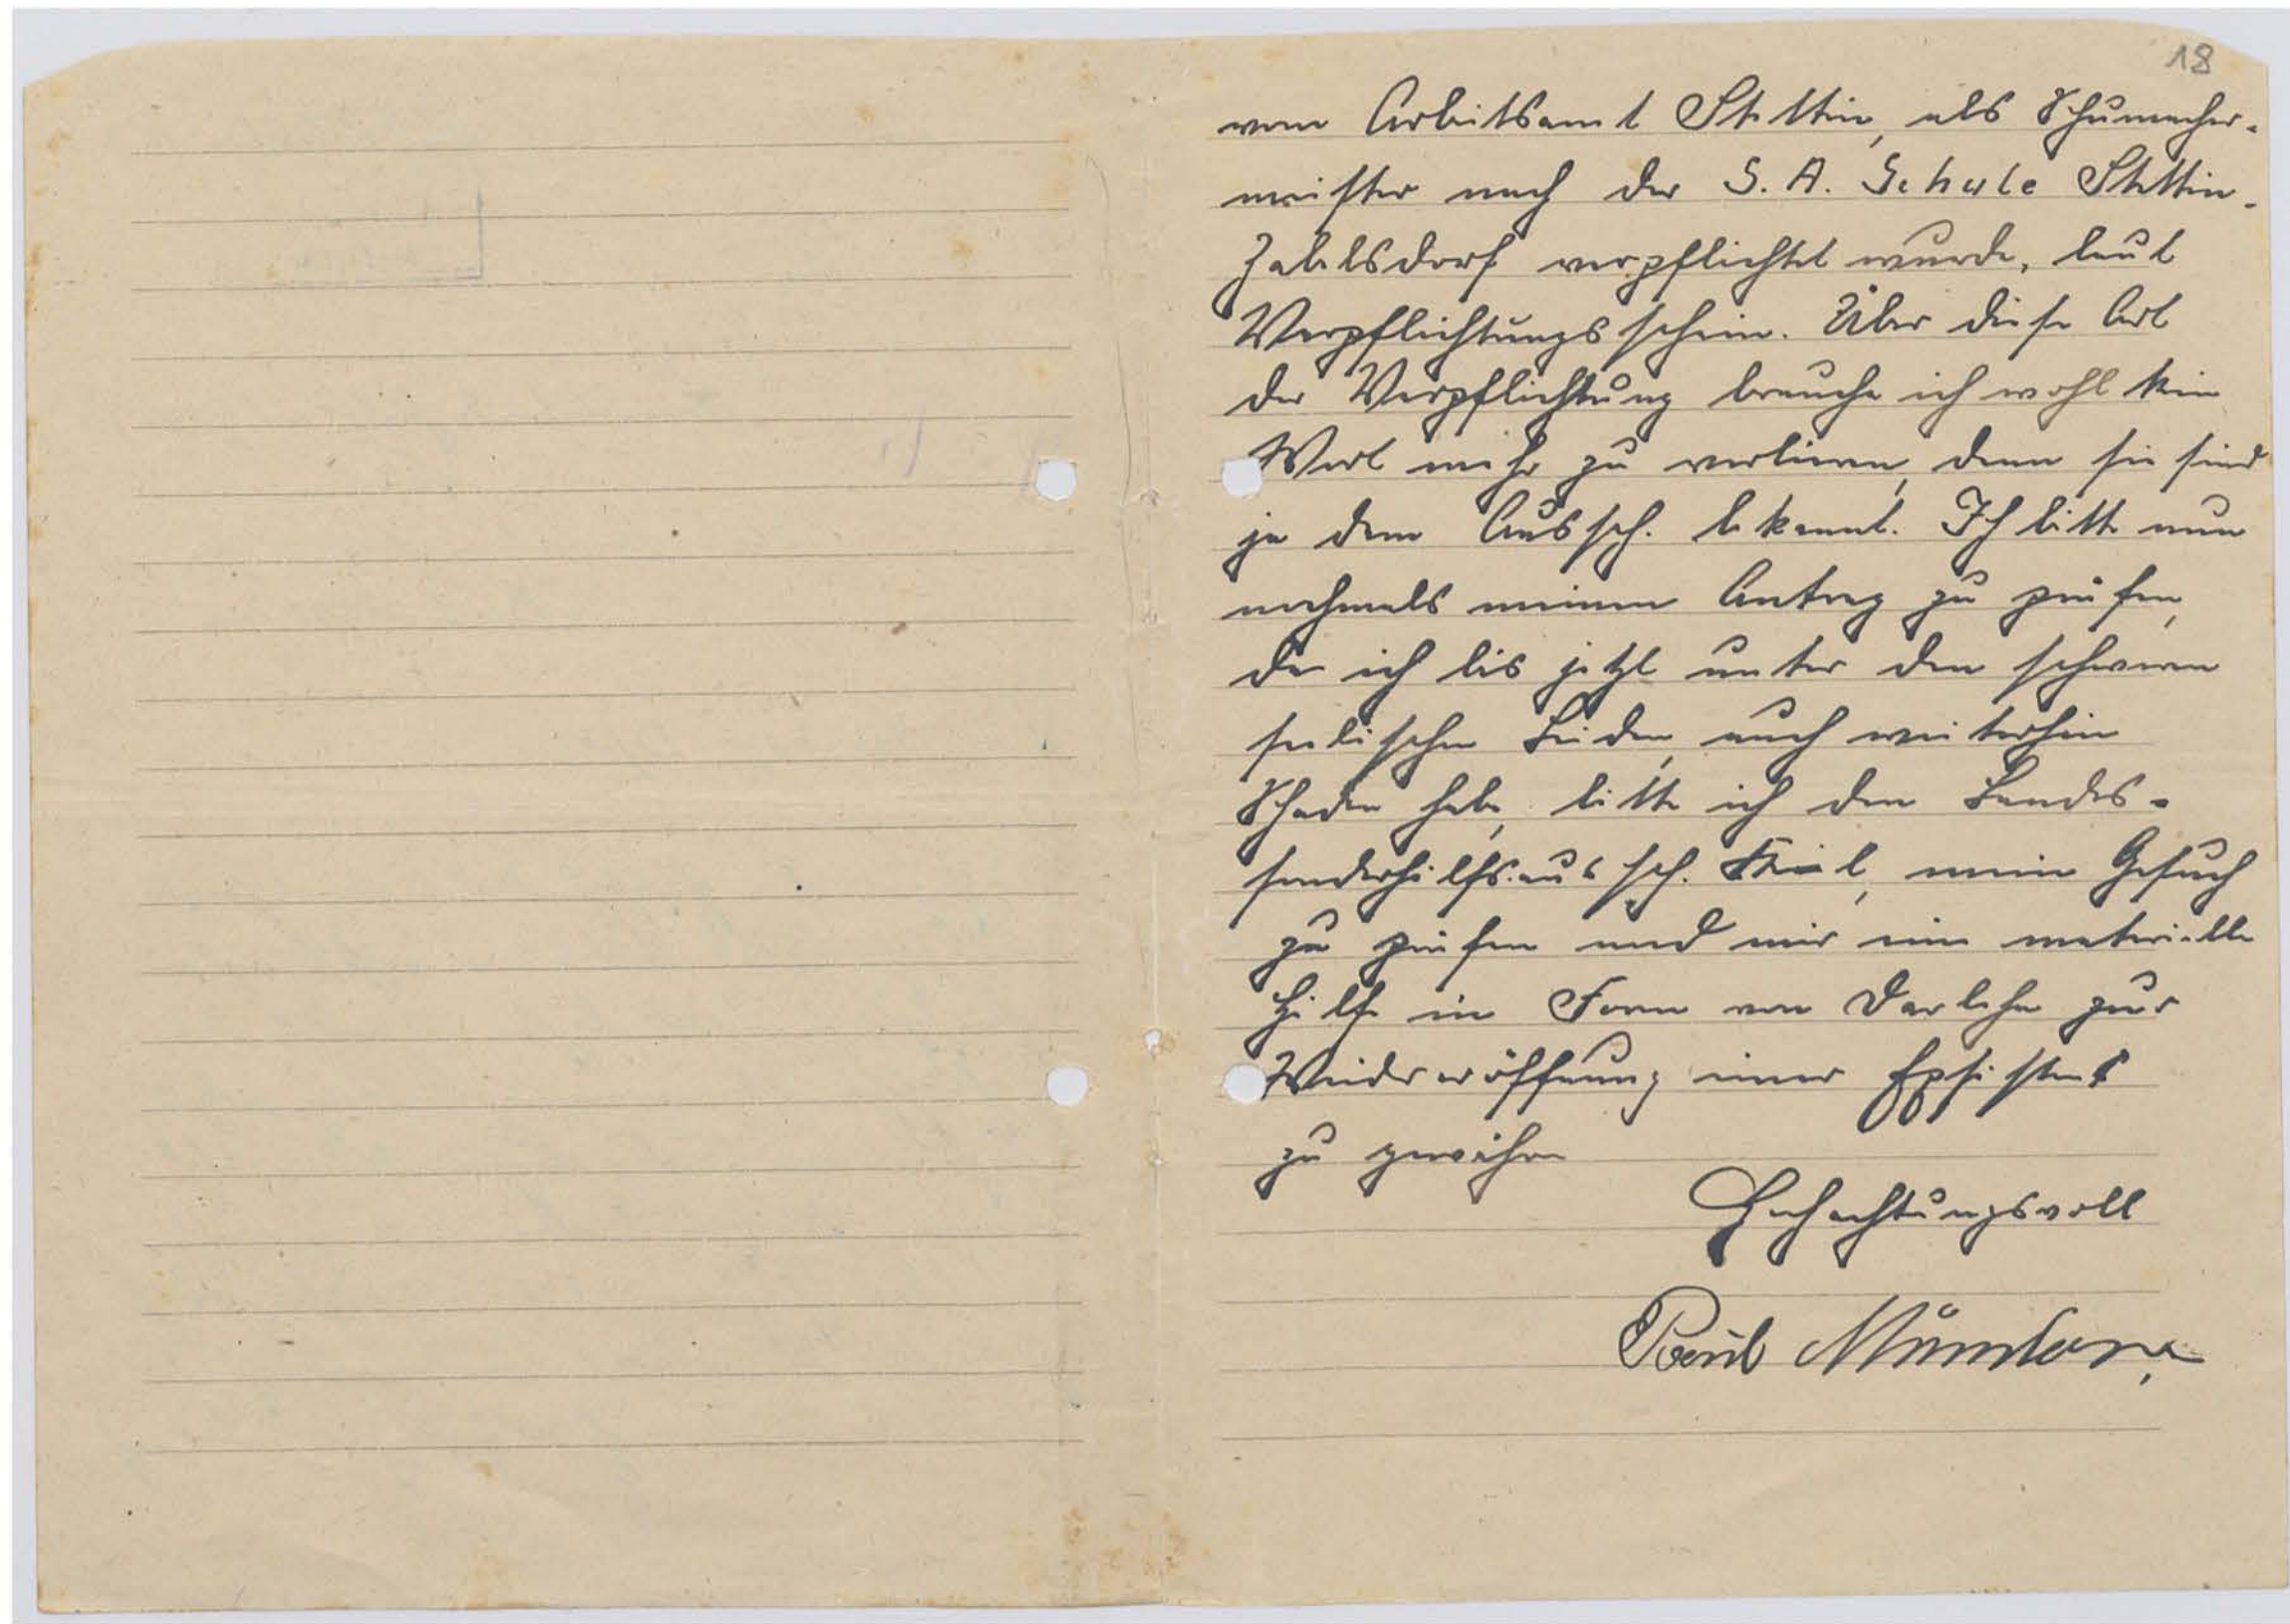 18
vom Arbeitsamt Stettin, als Schumacher-
meister nach der S. A. Schule Stettin-
Zabelsdorf verpflichtet wurde, laut
Verpflichtungsschein. Über diese Art
der Verpflichtung brauche ich wohl kein
Wort mehr zu verlieren, denn sie sind
ja dem Aussch. bekannt. Ich bitte nun
nochmals meinen Antrag zu prüfen,
da ich bis jetzt unter den schweren
seelischen Leiden, auch weiterhin
Schaden habe, bitte ich den Landes-
sonderhilfsaussch. Kiel, mein Gesuch
zu prüfen und mir eine materielle
Hilfe in Form von Darlehn zur
Wiedereröffnung einer Exsistens
zu gewähren
Hochachtungsvoll
Paul